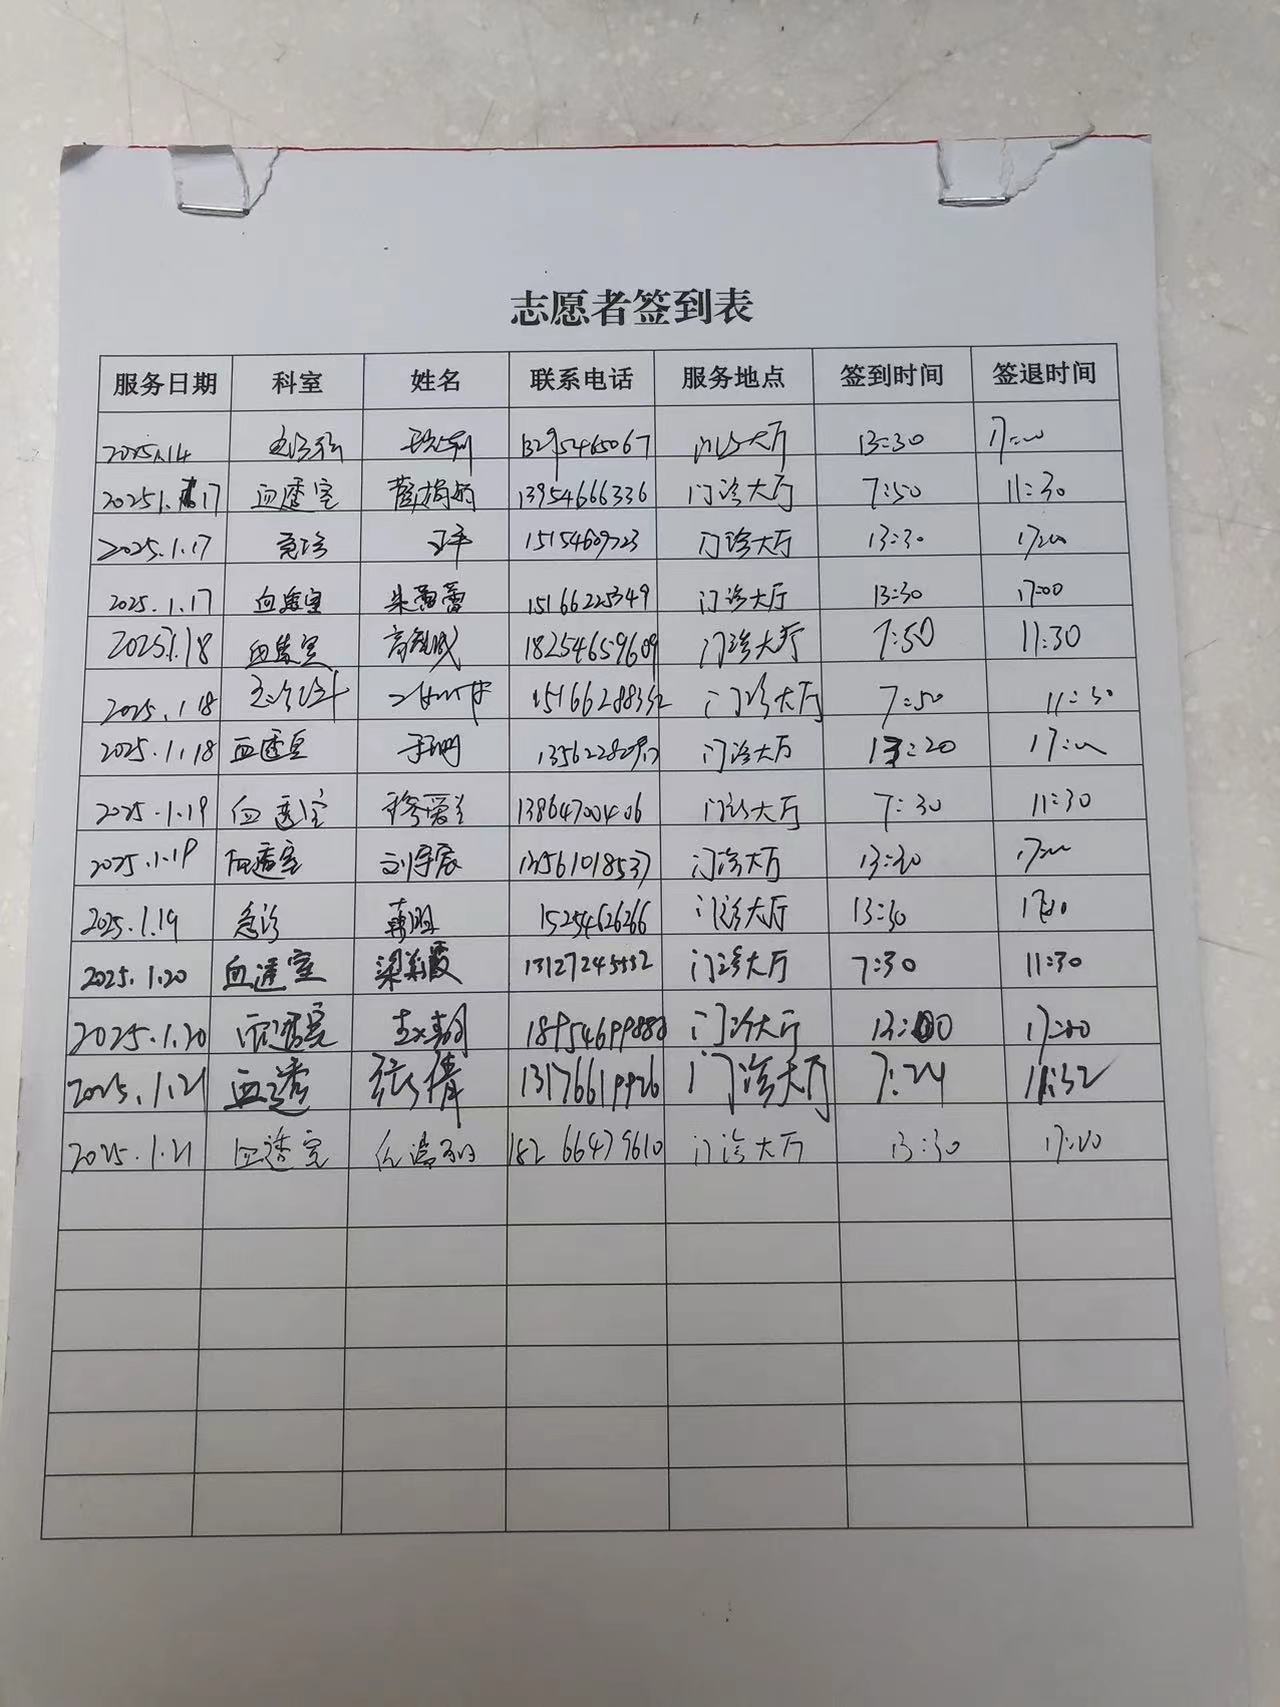 志愿者签到表
服务日期 科室 姓名 联系电话 服务地点 签到时间 签退时间
2025.1.14 13295465067 门诊大厅 13:30 17:00
2025.1.17 血透室 13954666336 门诊大厅 7:50 11:30
2025.1.17 急诊 15154609723 门诊大厅 13:30 17:00
2025.1.17 血透室 朱蕾蕾 15166225349 门诊大厅 13:30 17:00
2025.1.18 血透室 18254659609 门诊大厅 7:50 11:30
2025.1.18 15166288352 门诊大厅 7:50 11:30
2025.1.18 血透室 于珊 门诊大厅 13:20 17:00
2025.1.19 血透室 13864700406 门诊大厅 7:30 11:30
2025.1.19 血透室 13561018537 门诊大厅 13:30 17:00
2025.1.19 急诊 15254626266 门诊大厅 13:30 17:00
2025.1.20 血透室 梁美霞 13127245552 门诊大厅 7:30 11:30
2025.1.20 血透室 18954699888 门诊大厅 13:00 17:00
2025.1.21 血透 张倩 13176619926 门诊大厅 7:24 11:32
2025.1.21 血透室 18266479610 门诊大厅 13:30 17:00